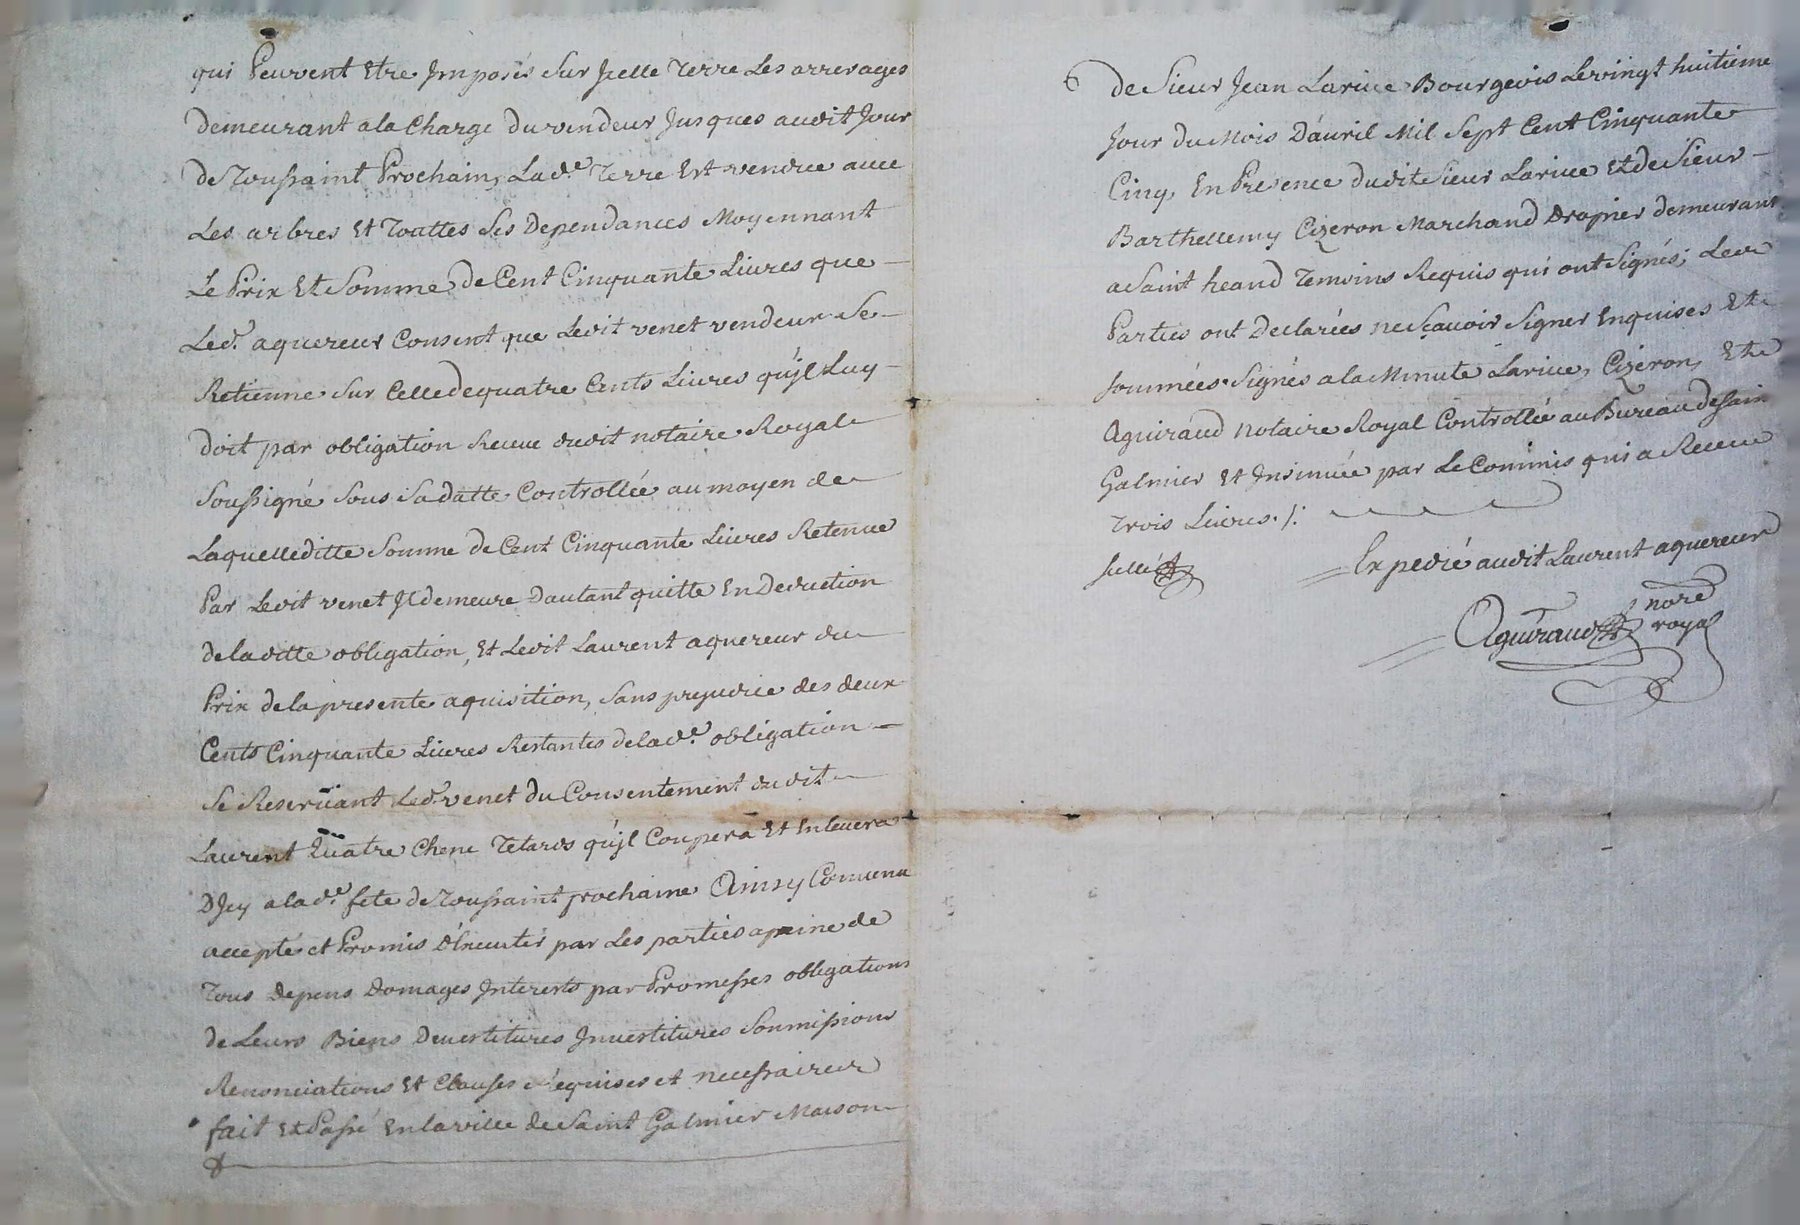 qui Peuvent Etre Jmposés sur Jcelle Terre Les arrerages
demeurant a la Charge du vendeur Jusques audit Jour
de Toussaint Prochain, Lad.e Terre Est vendue avec
Les arbres Et Touttes Ses Dependances Moyennant
Le Prix Et Somme de Cent Cinquante Livres que
Led.t aquereur Consent que Ledit venet vendeur Se
Retienne sur Celle de quatre Cents Livres qu'jl Luy
doit par obligation Receue dudit notaire Royal
Soussigné sous sa datte Controllée au moyen de
Laquelleditte Somme de Cent Cinquante Livres Retenue
Par Ledit venet Jl demeure Dautant quitte En Deduction
de laditte obligation, Et Ledit Laurent aquereur du
Prix de la presente aquisition, Sans prejudice des deux
Cents Cinquante Livres Restantes de lad.e obligation
Se Reservant Led.t venet du Consentement dudit
Laurent Quatre Chene Tetards qu'jl Coupera Et Enlevera
D'Jcy a lad.e fete de Toussaint prochaine Ainsy Convenu
accepté et Promis d'Executer par Les parties a peine de
Tous Depens Domages Interests par Promesses obligations
de Leurs Biens Devestitures Jnvestitures Soumissions
Renonciations Et Clauses Requises et necessaires
fait Et Passé En la ville de Saint Galmier Maison
de Sieur Jean Larive Bourgeois Le vingt huitieme
Jour du Mois D'avril Mil Sept Cent Cinquante
Cinq, En Presence dudit Sieur Larive Et de Sieur
Barthellemy Cizeron Marchand Drapier demeurant
a Saint heand Temoins Requis qui ont Signés, Les
Parties ont Declarées ne Sçavoir Signer Enquises Et
sommées. Signés a la Minute Larive, Cizeron, Et
Aguiraud Notaire Royal Controllée au Bureau de Sain
Galmier Et Insinuée par Le Commis qui a Receu
Trois Livres ./.
scellé
Expedié audit Laurent aquereur
Aguiraud nore
royal